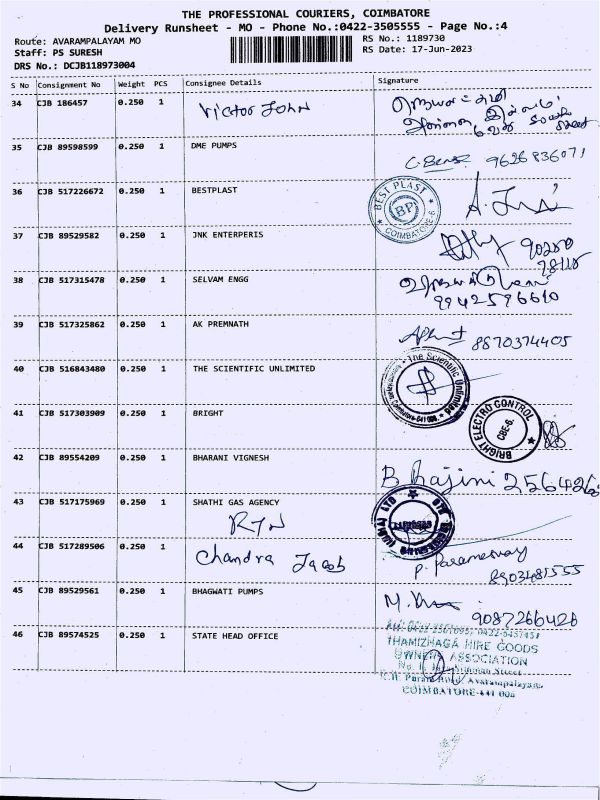 THE PROFESSIONAL COURIERS, COIMBATORE
Delivery Runsheet - MO - Phone No.:0422-3505555 - Page No.:4
Route: AVARAMPALAYAM MO
RS No.: 1189730
Staff: PS SURESH
RS Date: 17-Jun-2023
DRS No.: DCJB118973004
S No Consignment No Weight PCS Consignee Details Signature
34 CJB 186457 0.250 1 Victor John
35 CJB 89598599 0.250 1 DME PUMPS
9626836071
36 CJB 517226672 0.250 1 BESTPLAST
BEST PLAST
BP
COIMBATORE-6
37 CJB 89529582 0.250 1 JNK ENTERPERIS
38 CJB 517315478 0.250 1 SELVAM ENGG
9942596610
39 CJB 517325862 0.250 1 AK PREMNATH
8870374405
40 CJB 516843480 0.250 1 THE SCIENTIFIC UNLIMITED
The Scientific Unlimited
41 CJB 517303909 0.250 1 BRIGHT
BRIGHT ELECTRO CONTROL
CBE-6.
42 CJB 89554209 0.250 1 BHARANI VIGNESH
B Rajini 2564266
43 CJB 517175969 0.250 1 SHATHI GAS AGENCY
44 CJB 517289506 0.250 1 Chandra Jacob
8903481555
45 CJB 89529561 0.250 1 BHAGWATI PUMPS
9087266426
46 CJB 89574525 0.250 1 STATE HEAD OFFICE
THAMIZHAGA HIRE GOODS
OWNERS ASSOCIATION
COIMBATORE-641 006